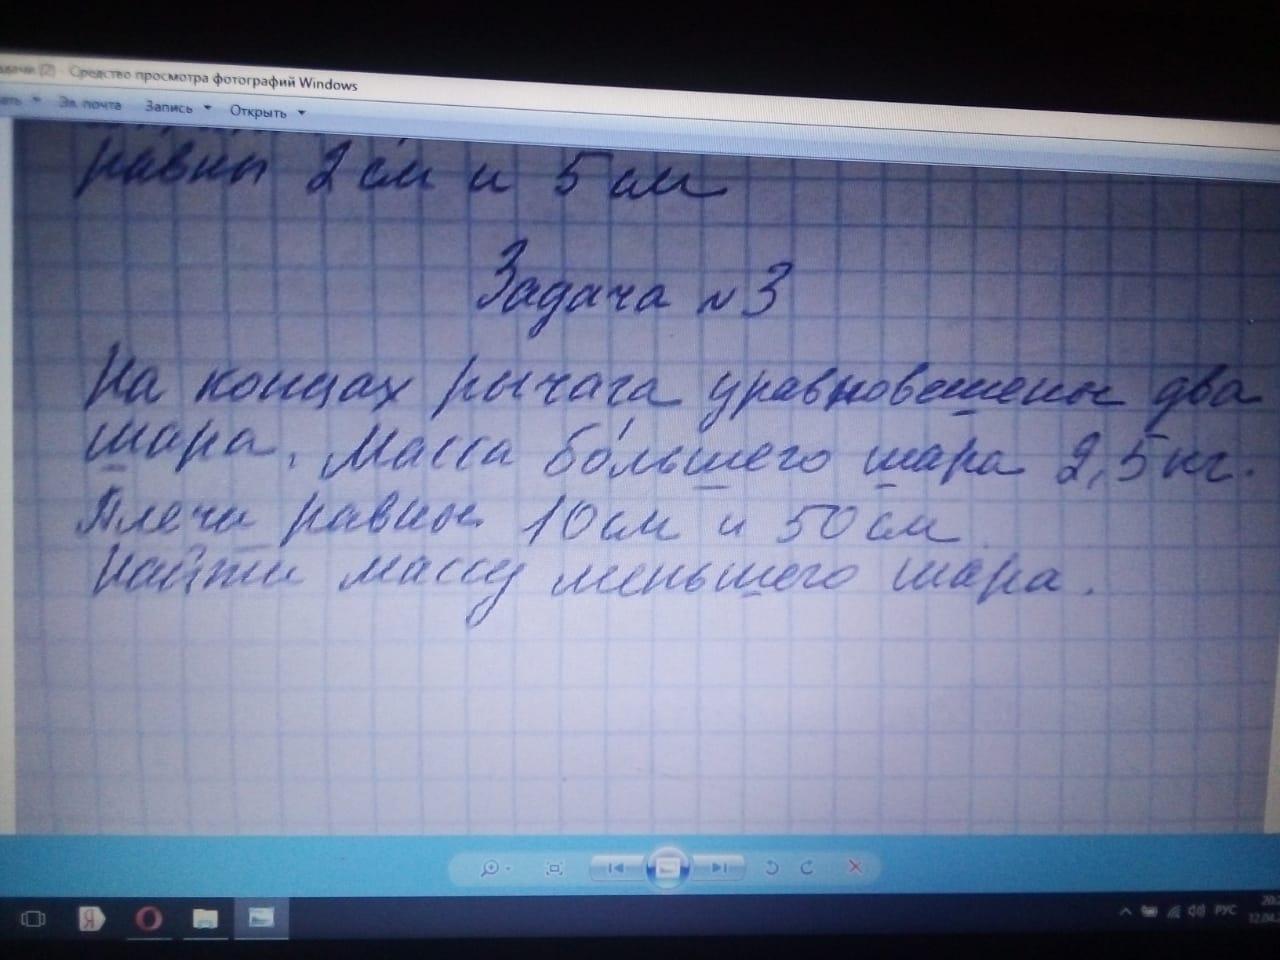 Средство просмотра фотографий Windows
Эл. почта Запись Открыть
равны 2 см и 5 см
Задача №3
На концах рычага уравновешены два
шара. Масса большего шара 2,5 кг.
Плечи равны 10 см и 50 см.
Найти массу меньшего шара.
РУС